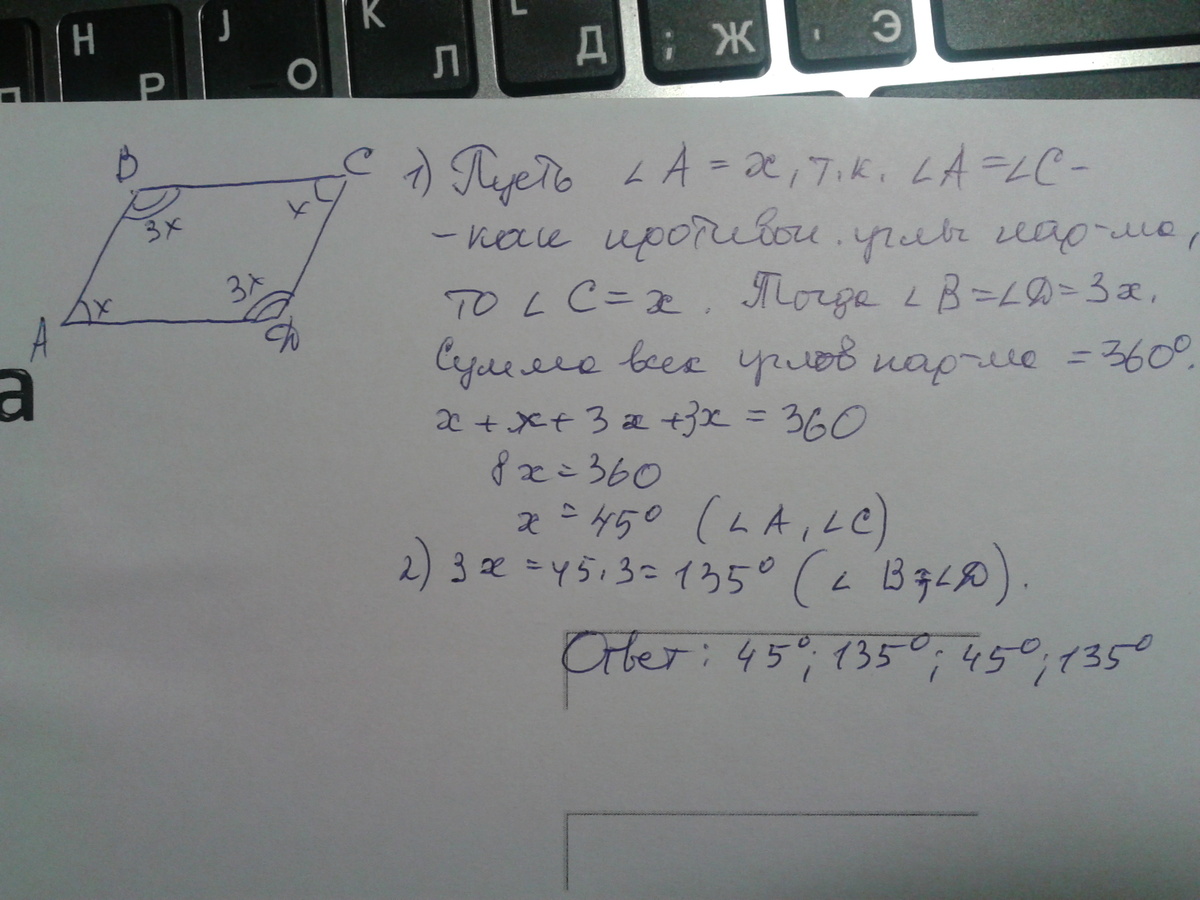 Н
Р
J
О
К
Л
L
Д
; Ж
' Э
B
C
3x
x
3x
x
A
D
а
1) Пусть ∠A = x, т.к. ∠A = ∠C -
- как противоп. углы пар-ма,
то ∠C = x. Тогда ∠B = ∠D = 3x.
Сумма всех углов пар-ма = 360°.
x + x + 3x + 3x = 360
8x = 360
x = 45° (∠A, ∠C)
2) 3x = 45·3 = 135° (∠B, ∠D).
Ответ: 45°; 135°; 45°; 135°